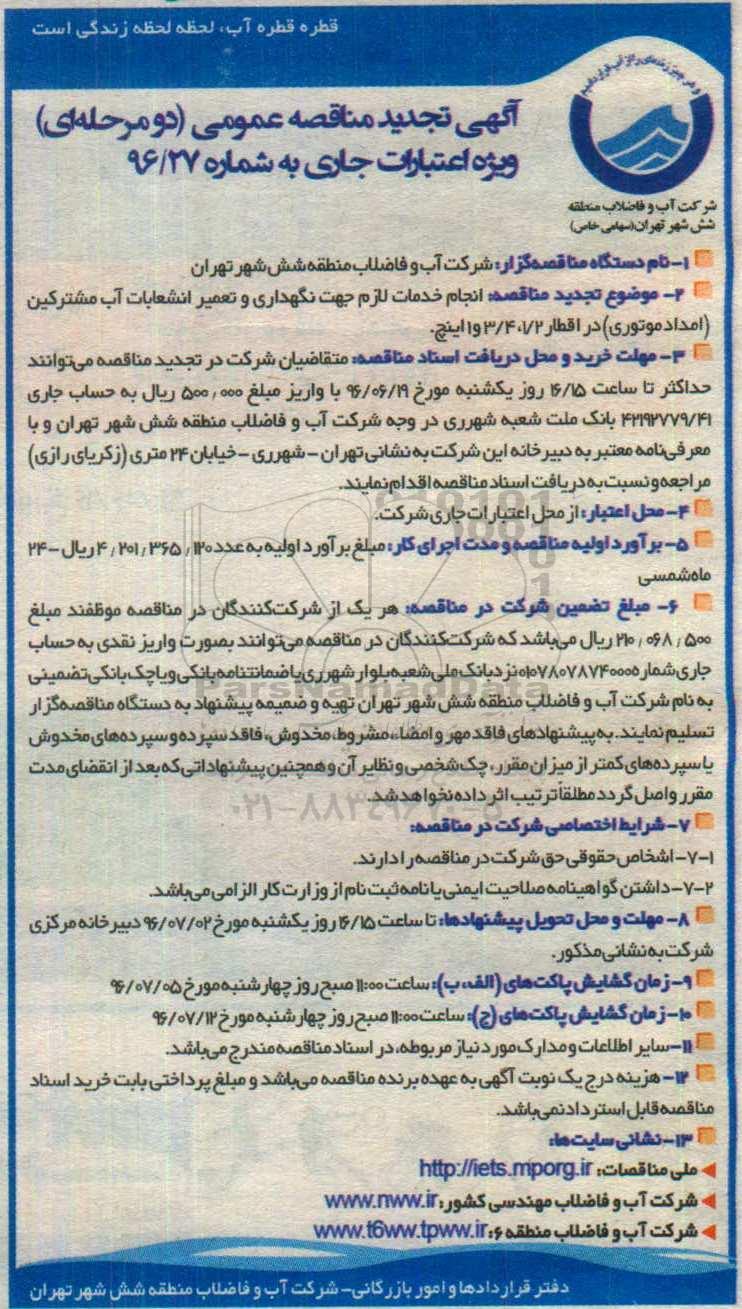 قطره قطره آب، لحظه لحظه زندگی است
آگهی تجدید مناقصه عمومی (دو مرحله‌ای)
ویژه اعتبارات جاری به شماره ۹۶/۲۷
شرکت آب و فاضلاب منطقه
شش شهر تهران (سهامی خاص)
۱- نام دستگاه مناقصه‌گزار: شرکت آب و فاضلاب منطقه شش شهر تهران
۲- موضوع تجدید مناقصه: انجام خدمات لازم جهت نگهداری و تعمیر انشعابات آب مشترکین
(امداد موتوری) در اقطار ۱/۲، ۳/۴ و ۱ اینچ.
۳- مهلت خرید و محل دریافت اسناد مناقصه: متقاضیان شرکت در تجدید مناقصه می‌توانند
حداکثر تا ساعت ۱۶/۱۵ روز یکشنبه مورخ ۹۶/۰۶/۱۹ با واریز مبلغ ۵۰۰,۰۰۰ ریال به حساب جاری
۴۲۱۹۲۷۷۹/۴۱ بانک ملت شعبه شهرری در وجه شرکت آب و فاضلاب منطقه شش شهر تهران و با
معرفی‌نامه معتبر به دبیرخانه این شرکت به نشانی تهران - شهرری - خیابان ۲۴ متری (زکریای رازی)
مراجعه و نسبت به دریافت اسناد مناقصه اقدام نمایند.
۴- محل اعتبار: از محل اعتبارات جاری شرکت.
۵- برآورد اولیه مناقصه و مدت اجرای کار: مبلغ برآورد اولیه به عدد ۴,۲۰۱,۳۶۵,۱۲۰ ریال - ۲۴
ماه شمسی
۶- مبلغ تضمین شرکت در مناقصه: هر یک از شرکت‌کنندگان در مناقصه موظفند مبلغ
۲۱۰,۰۶۸,۵۰۰ ریال می‌باشد که شرکت‌کنندگان در مناقصه می‌توانند بصورت واریز نقدی به حساب
جاری شماره ۰۱۰۷۸۰۷۸۷۴۰۰۰ نزد بانک ملی شعبه بلوار شهرری یا ضمانتنامه بانکی و یا چک بانکی تضمینی
به نام شرکت آب و فاضلاب منطقه شش شهر تهران تهیه و ضمیمه پیشنهاد به دستگاه مناقصه‌گزار
تسلیم نمایند. به پیشنهادهای فاقد مهر و امضاء، مشروط، مخدوش، فاقد سپرده و سپرده‌های مخدوش
یا سپرده‌های کمتر از میزان مقرر، چک شخصی و نظایر آن و همچنین پیشنهاداتی که بعد از انقضای مدت
مقرر واصل گردد مطلقاً ترتیب اثر داده نخواهد شد.
۷- شرایط اختصاصی شرکت در مناقصه:
۷-۱- اشخاص حقوقی حق شرکت در مناقصه را دارند.
۷-۲- داشتن گواهینامه صلاحیت ایمنی یا نامه ثبت نام از وزارت کار الزامی می‌باشد.
۸- مهلت و محل تحویل پیشنهادها: تا ساعت ۱۶/۱۵ روز یکشنبه مورخ ۹۶/۰۷/۰۲ دبیرخانه مرکزی
شرکت به نشانی مذکور.
۹- زمان گشایش پاکت‌های (الف، ب): ساعت ۱۱:۰۰ صبح روز چهارشنبه مورخ ۹۶/۰۷/۰۵
۱۰- زمان گشایش پاکت‌های (ج): ساعت ۱۱:۰۰ صبح روز چهارشنبه مورخ ۹۶/۰۷/۱۲
۱۱- سایر اطلاعات و مدارک مورد نیاز مربوطه، در اسناد مناقصه مندرج می‌باشد.
۱۲- هزینه درج یک نوبت آگهی به عهده برنده مناقصه می‌باشد و مبلغ پرداختی بابت خرید اسناد
مناقصه قابل استرداد نمی‌باشد.
۱۳- نشانی سایت‌ها:
ملی مناقصات: http://iets.mporg.ir
شرکت آب و فاضلاب مهندسی کشور: www.nww.ir
شرکت آب و فاضلاب منطقه ۶: www.t6ww.tpww.ir
دفتر قراردادها و امور بازرگانی - شرکت آب و فاضلاب منطقه شش شهر تهران
ParsNamadData